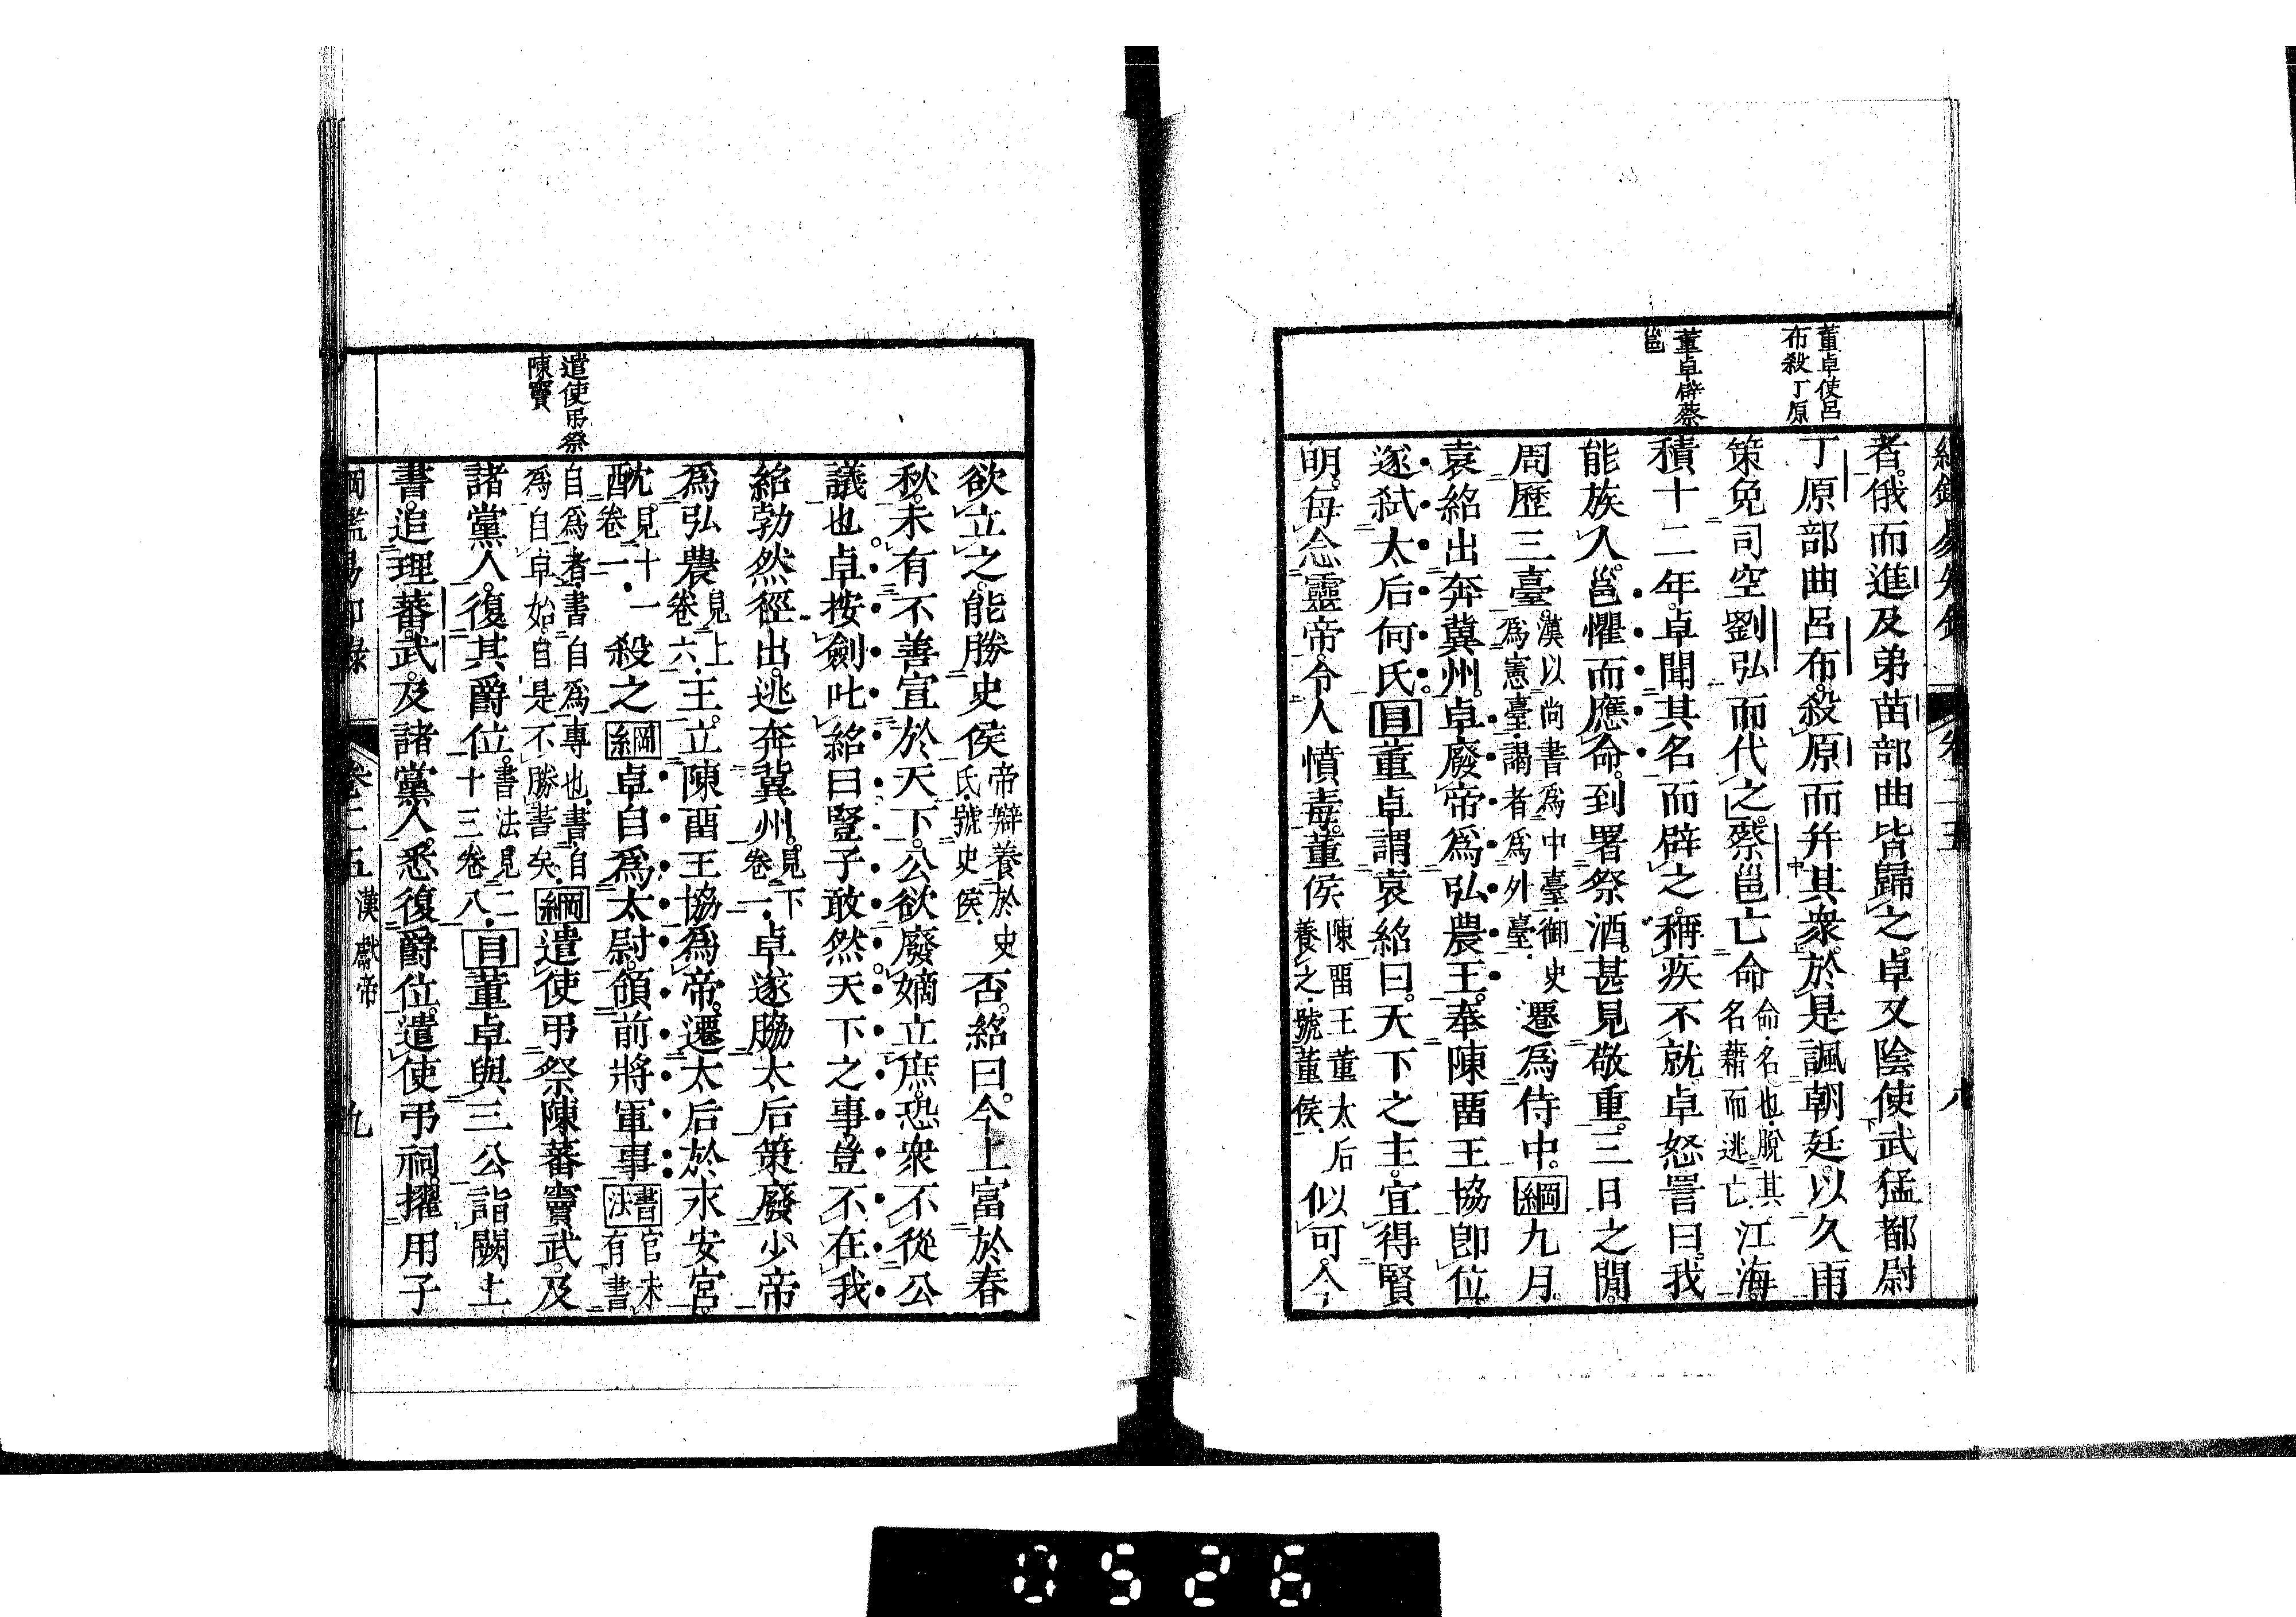 董卓使呂
布殺丁原
董卓辟蔡
邕
者。俄而進及弟苗部曲皆歸之。卓又陰使武猛都尉
丁原部曲呂布。殺原而幷其衆。於是諷朝廷。以久雨
策免司空劉弘而代之。蔡邕亡命命・名也・脫其名藉而逃亡・江海。
積十二年。卓聞其名而辟之。稱疾不就卓怒詈曰。我
能族人。邕懼而應命。到署祭酒。甚見敬重。三日之閒。
周歷三臺。漢以尚書爲中臺・御史爲憲臺・謁者爲外臺・遷爲侍中。綱九月
袁紹出奔冀州。卓廢帝爲弘農王。奉陳畱王協卽位
遂弒太后何氏。目董卓謂袁紹曰。天下之主。宜得賢
明。每念靈帝。令人憤毒。董侯陳畱王董太后養之・號董侯・似可。今
欲立之。能勝史侯帝辯養於史氏・號史侯・否。紹曰。今上富於春
秋。未有不善宣於天下。公欲廢嫡立庶。恐衆不從公
議也。卓按劍叱紹曰豎子敢然。天下之事。豈不在我
紹勃然徑出。逃奔冀州。見下卷一・卓遂脇太后策廢少帝
爲弘農見上卷六・王。立陳畱王協爲帝。遷太后於永安宮。
酖見十一卷一・殺之綱卓自爲太尉。領前將軍事書法官未有書
自爲者・書自爲專也・書自爲自卓始・自是不勝書矣・綱遣使弔祭陳蕃竇武。及
諸黨人。復其爵位。書法見二十三卷八・目董卓與三公詣闕上
書。追理蕃武。及諸黨人。悉復爵位。遣使弔祠。擢用子
遣使弔祭
陳竇
卷二五 漢獻帝 九